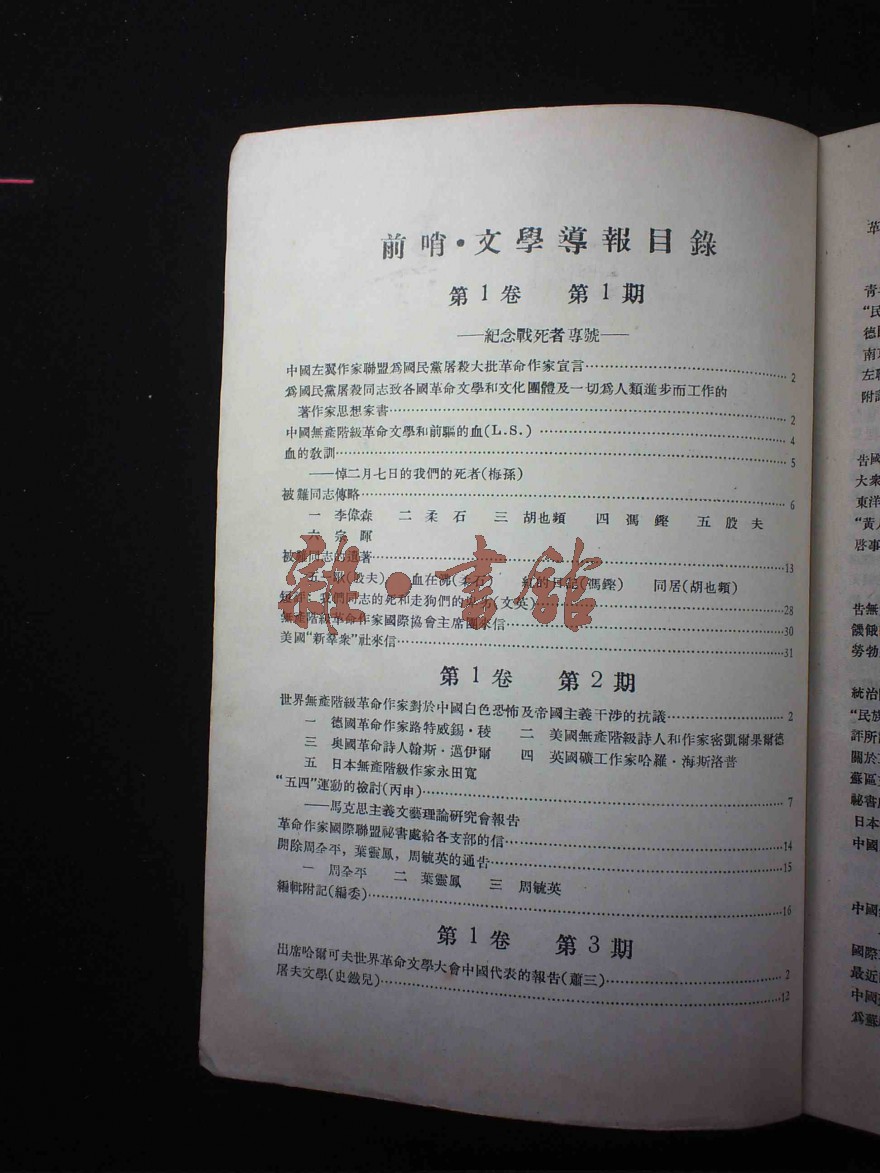 前哨·文學導報目錄
第1卷 第1期
——紀念戰死者專號——
中國左翼作家聯盟爲國民黨屠殺大批革命作家宣言……2
爲國民黨屠殺同志致各國革命文學和文化團體及一切爲人類進步而工作的
著作家思想家書……2
中國無產階級革命文學和前驅的血(L.S.)……4
血的敎訓……5
——悼二月七日的我們的死者(梅孫)
被難同志傳略……6
一 李偉森 二 柔石 三 胡也頻 四 馮鏗 五 殷夫
六 宗暉
被難同志的遺著……13
五一歌(殷夫) 血在沸(柔石) 紅的日記(馮鏗) 同居(胡也頻)
短評:我們同志的死和走狗們的(文英)……28
無產階級革命作家國際協會主席團來信……30
美國“新羣衆”社來信……31
第1卷 第2期
世界無產階級革命作家對於中國白色恐怖及帝國主義干涉的抗議……2
一 德國革命作家路特威錫·稜 二 美國無產階級詩人和作家密凱爾果爾德
三 奥國革命詩人翰斯·邁伊爾 四 英國礦工作家哈羅·海斯洛普
五 日本無產階級作家永田寬
“五四”運動的檢討(丙申)……7
——馬克思主義文藝理論研究會報告
革命作家國際聯盟祕書處給各支部的信……14
開除周全平，葉靈鳳，周毓英的通告……15
一 周全平 二 葉靈鳳 三 周毓英
編輯附記(編委)……16
第1卷 第3期
出席哈爾可夫世界革命文學大會中國代表的報告(蕭三)……2
屠夫文學(史鐵兒)……12
雜·書館
革
青
“民
德
南
左
附
告國
大衆
東洋
“黃人
啓事
告無
饑餓
勞勃
統治
“民族
評所
關於
蘇區
祕書處
日本
中國
中國
國際
最近
中國
爲蘇